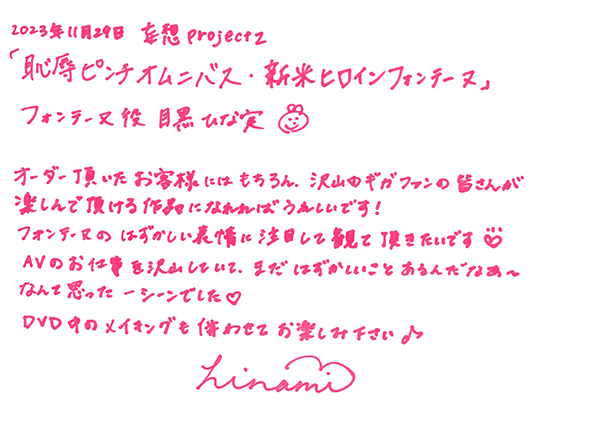 2023年11月29日 妄想projectZ
「恥辱ピンチオムニバス・新米ヒロインフォンテーヌ」
フォンテーヌ役 目黒ひな実
オーダー頂いたお客様にはもちろん、沢山のギガファンの皆さんが
楽しんで頂ける作品になれればうれしいです！
フォンテーヌの はずかしい表情に注目して観て頂きたいです
AVのお仕事を沢山していて、まだはずかしいことあるんだなあ〜
なんて思った一シーンでした♡
DVD中のメイキングも併わせてお楽しみ下さい♪
hinami